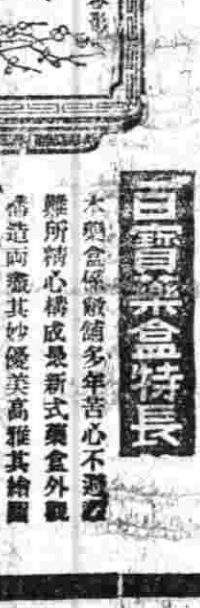 百寶藥盒特長
本藥盒係敝舖多年苦心不避
難所精心構成最新式藥盒外觀
構造両盡其妙優美高雅其繪圖